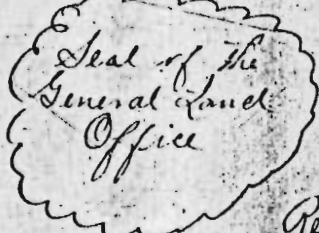 Seal of the
General Land
Office